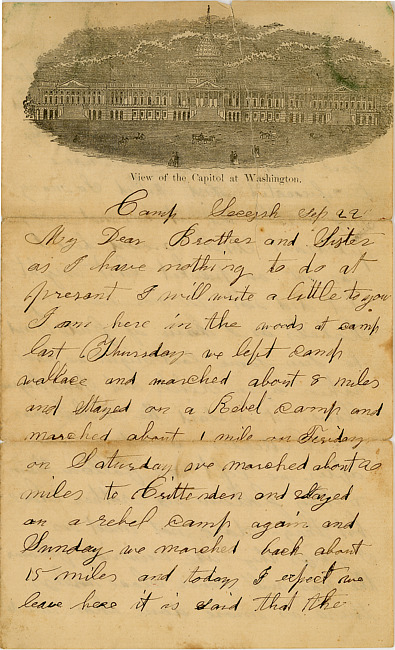 View of the Capitol at Washington.
Camp Secesh Sep 22
My Dear Brother and Sister
as I have nothing to do at
present I will write a little to you
I am here in the woods at camp
last Thursday we left camp
wallace and marched about 8 miles
and Stayed on a Rebel camp and
marched about 1 mile on Friday
on Saturday we marched about 20
miles to Crittenden and stayed
on a rebel camp again and
Sunday we marched back about
15 miles and today I expect we
leave here it is said that the